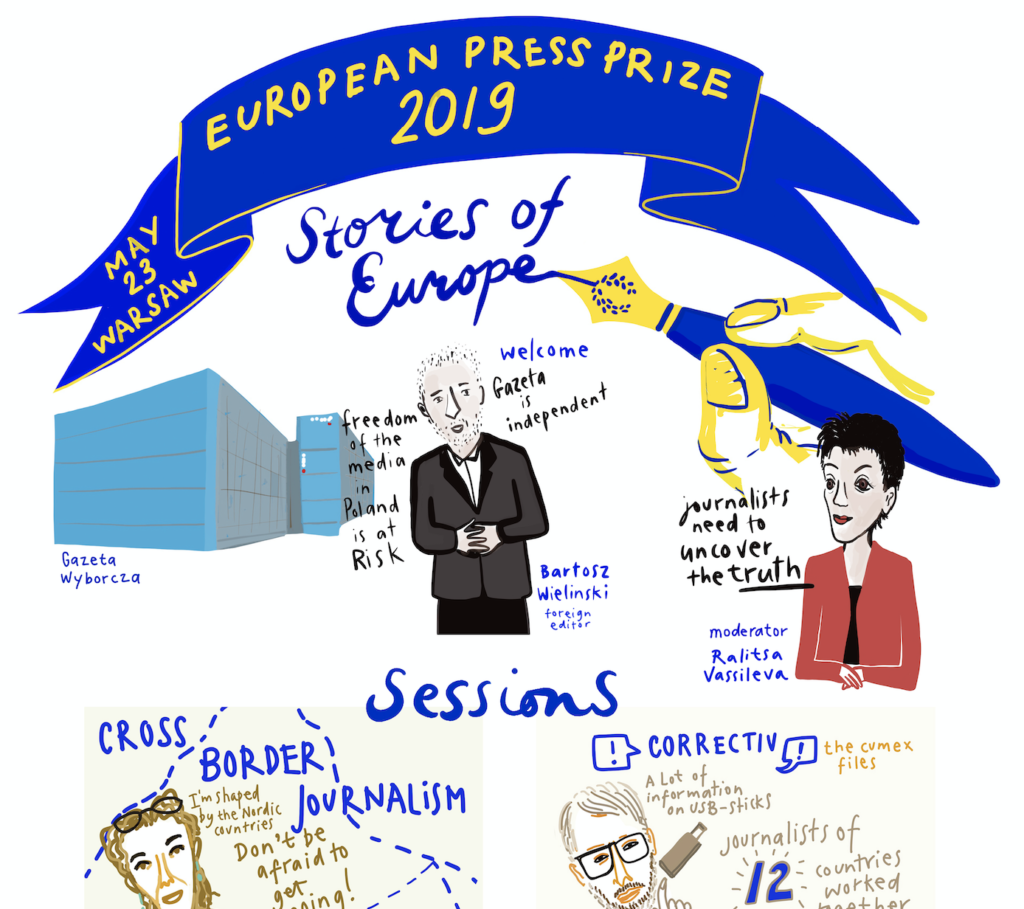 EUROPEAN PRESS PRIZE
2019
MAY
23
WARSAW
Stories of
Europe
welcome
Gazeta
is
independent
freedom
of the
media
in
Poland
is at
RISK
Gazeta
Wyborcza
Bartosz
Wielinski
foreign
editor
journalists
need to
uncover
the truth
moderator
Ralitsa
Vassileva
Sessions
CROSS
BORDER
JOURNALISM
I'm shaped
by the Nordic
countries
Don't be
afraid to
get
! CORRECTIV !
the cumex
files
A Lot of
information
on USB-sticks
journalists of
12
countries
worked
together